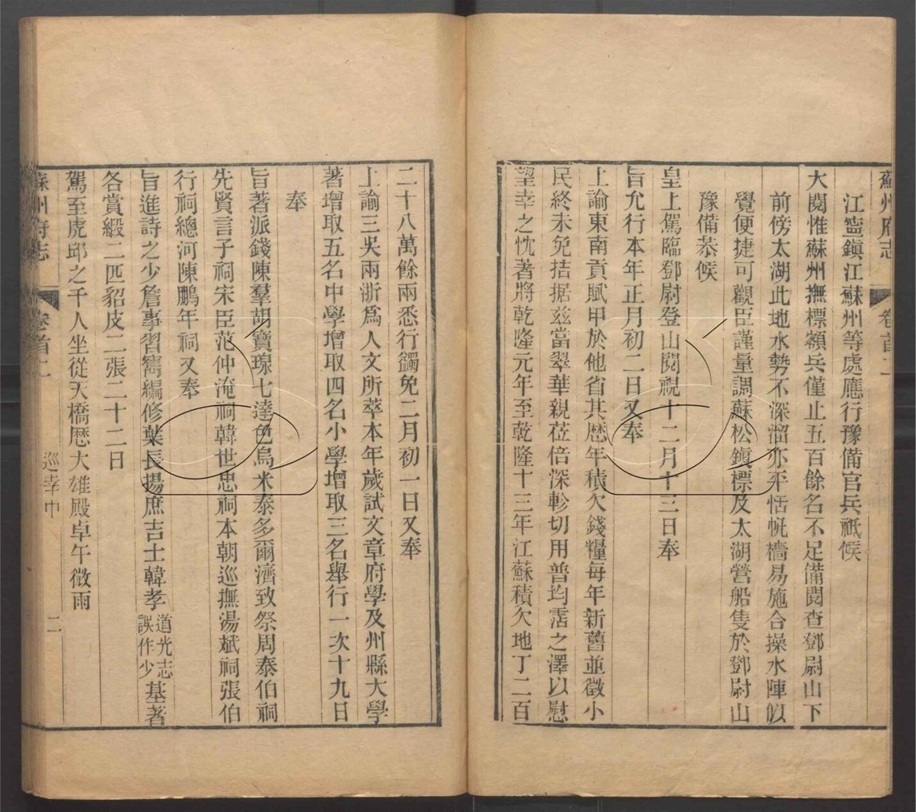 蘇州府志 卷首二
江寧鎭江蘇州等處應行豫備官兵祇候
大閱惟蘇州撫標額兵僅止五百餘名不足備閱查鄧尉山下
前傍太湖此地水勢不深溜亦平恬帆檣易施合操水陣似
覺便捷可觀臣謹量調蘇松鎭標及太湖營船隻於鄧尉山
豫備恭候
皇上駕臨鄧尉登山閱視十二月十三日奉
旨允行本年正月初二日又奉
上諭東南貢賦甲於他省其歷年積欠錢糧每年新舊並徵小
民終未免拮据玆當翠華親莅倍深軫切用普均霑之澤以慰
望幸之忱著將乾隆元年至乾隆十三年江蘇積欠地丁二百
二十八萬餘兩悉行蠲免二月初一日又奉
上諭三吳兩浙爲人文所萃本年歲試文章府學及州縣大學
著增取五名中學增取四名小學增取三名舉行一次十九日
奉
旨著派錢陳羣胡寶瑔七達色烏米泰多爾濟致祭周泰伯祠
先賢言子祠宋臣范仲淹祠韓世忠祠本朝巡撫湯斌祠張伯
行祠總河陳鵬年祠又奉
旨進詩之少詹事習寯編修葉長揚庶吉士韓孝道光志誤作少基著
各賞緞二匹貂皮二張二十二日
駕至虎邱之千人坐從天橋歷大雄殿卓午微雨
蘇州府志 卷首二 巡幸中 二